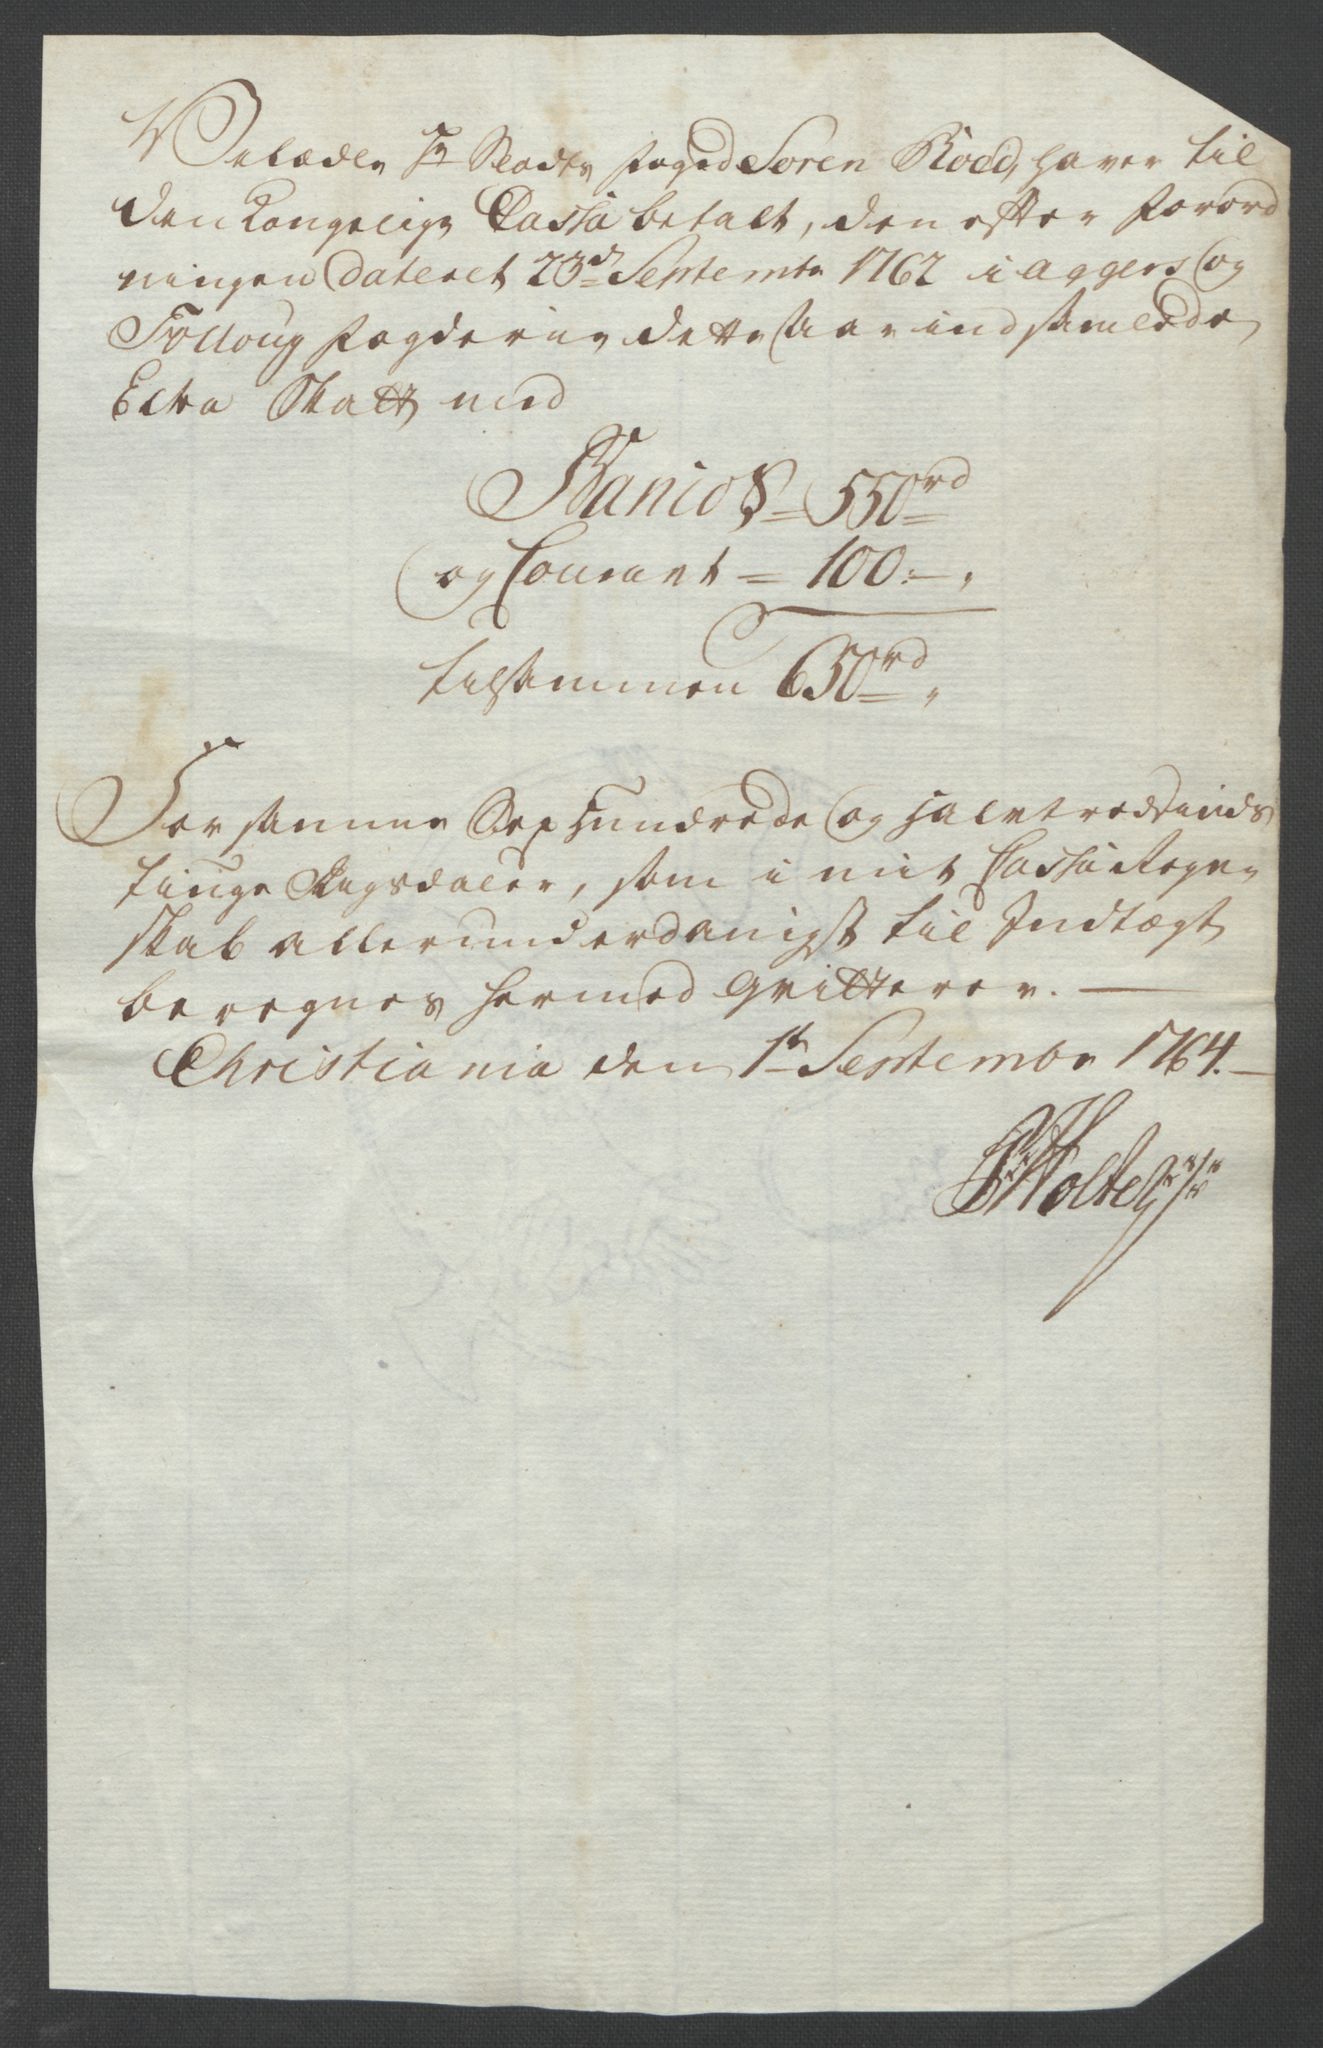 Velædle Hr Stads foged Søren Röed, haver til
den Kongelige Cassa betalt, den efter forord
ningen dateret 23d Septembr 1762 i Aggers og
Folloug fogderie dette Aar indsamlede
Extra Skatt med
Banco S = 550rd
og Courant = 100:—.
tilsammen 650rd.
For samme Sex Hundrede og halvtredsinds
tiuge Rigsdaler, som i mit Cassa Regne
skab allerunderdanigst til Indtægt
beregnes hermed qvitterer. —
Christiania den 1t Septembr 1764. —
Holte